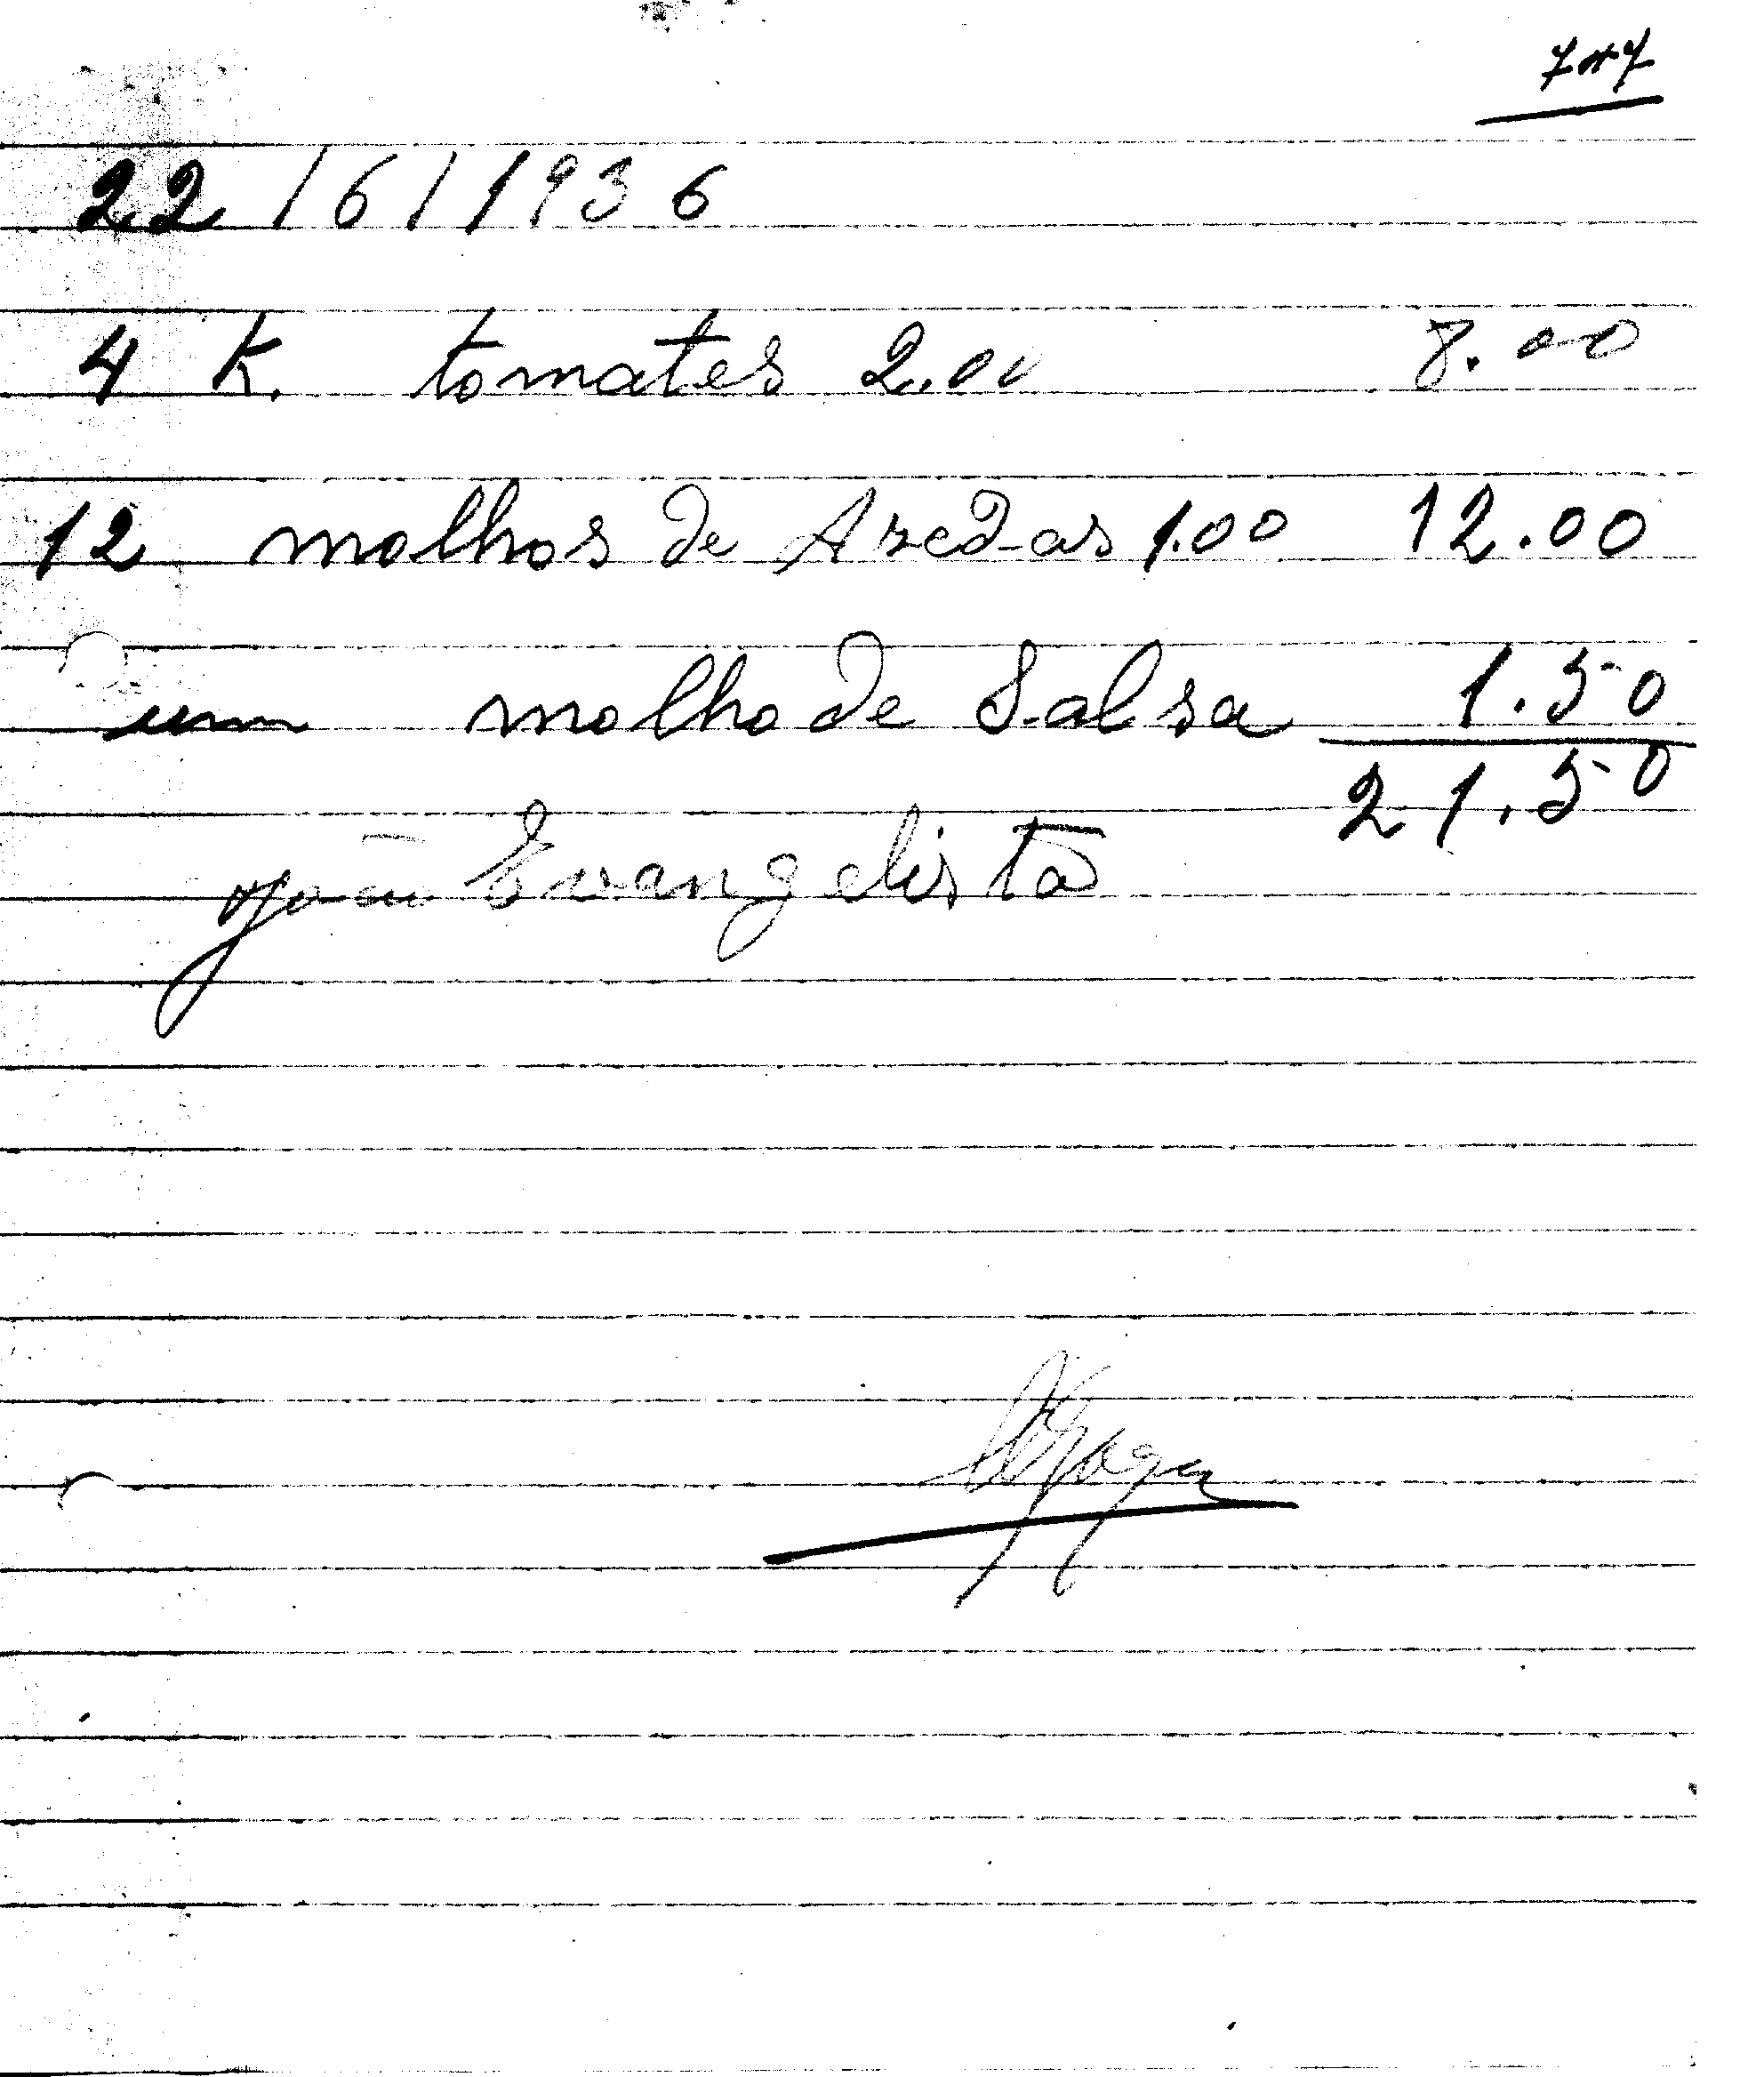 22/6/1936
4 K. tomates 2.00 8.00
12 molhos de Azedas 1.00 12.00
um molho de Salsa 1.50
21.50
João Evangelista